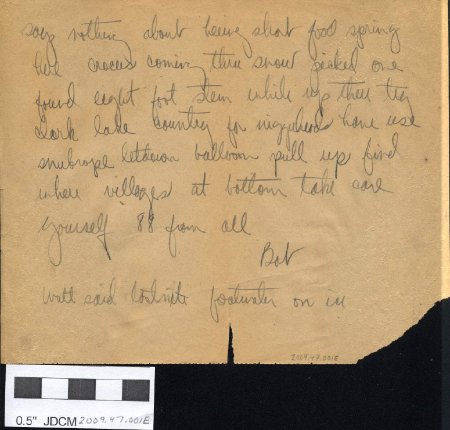 says nothing about being short food spring
here crocus coming thru snow picked one
found eight foot stem while up there try
Clark lake country for niggerheads have use
snubrope between balloon pull up find
where villages at bottom take care
yourself 88 from all
Bob
Watt said last nite footwater on ice
2009.47.001E
0.5" JDCM 2009.47.001E